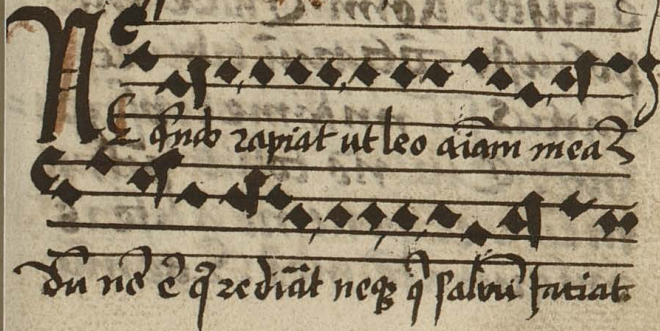 NE qñdo rapiat ut leo aīam meaʒ
dū nō ē q̇ redimāt neqꝫ q̇ salvū fatiat.